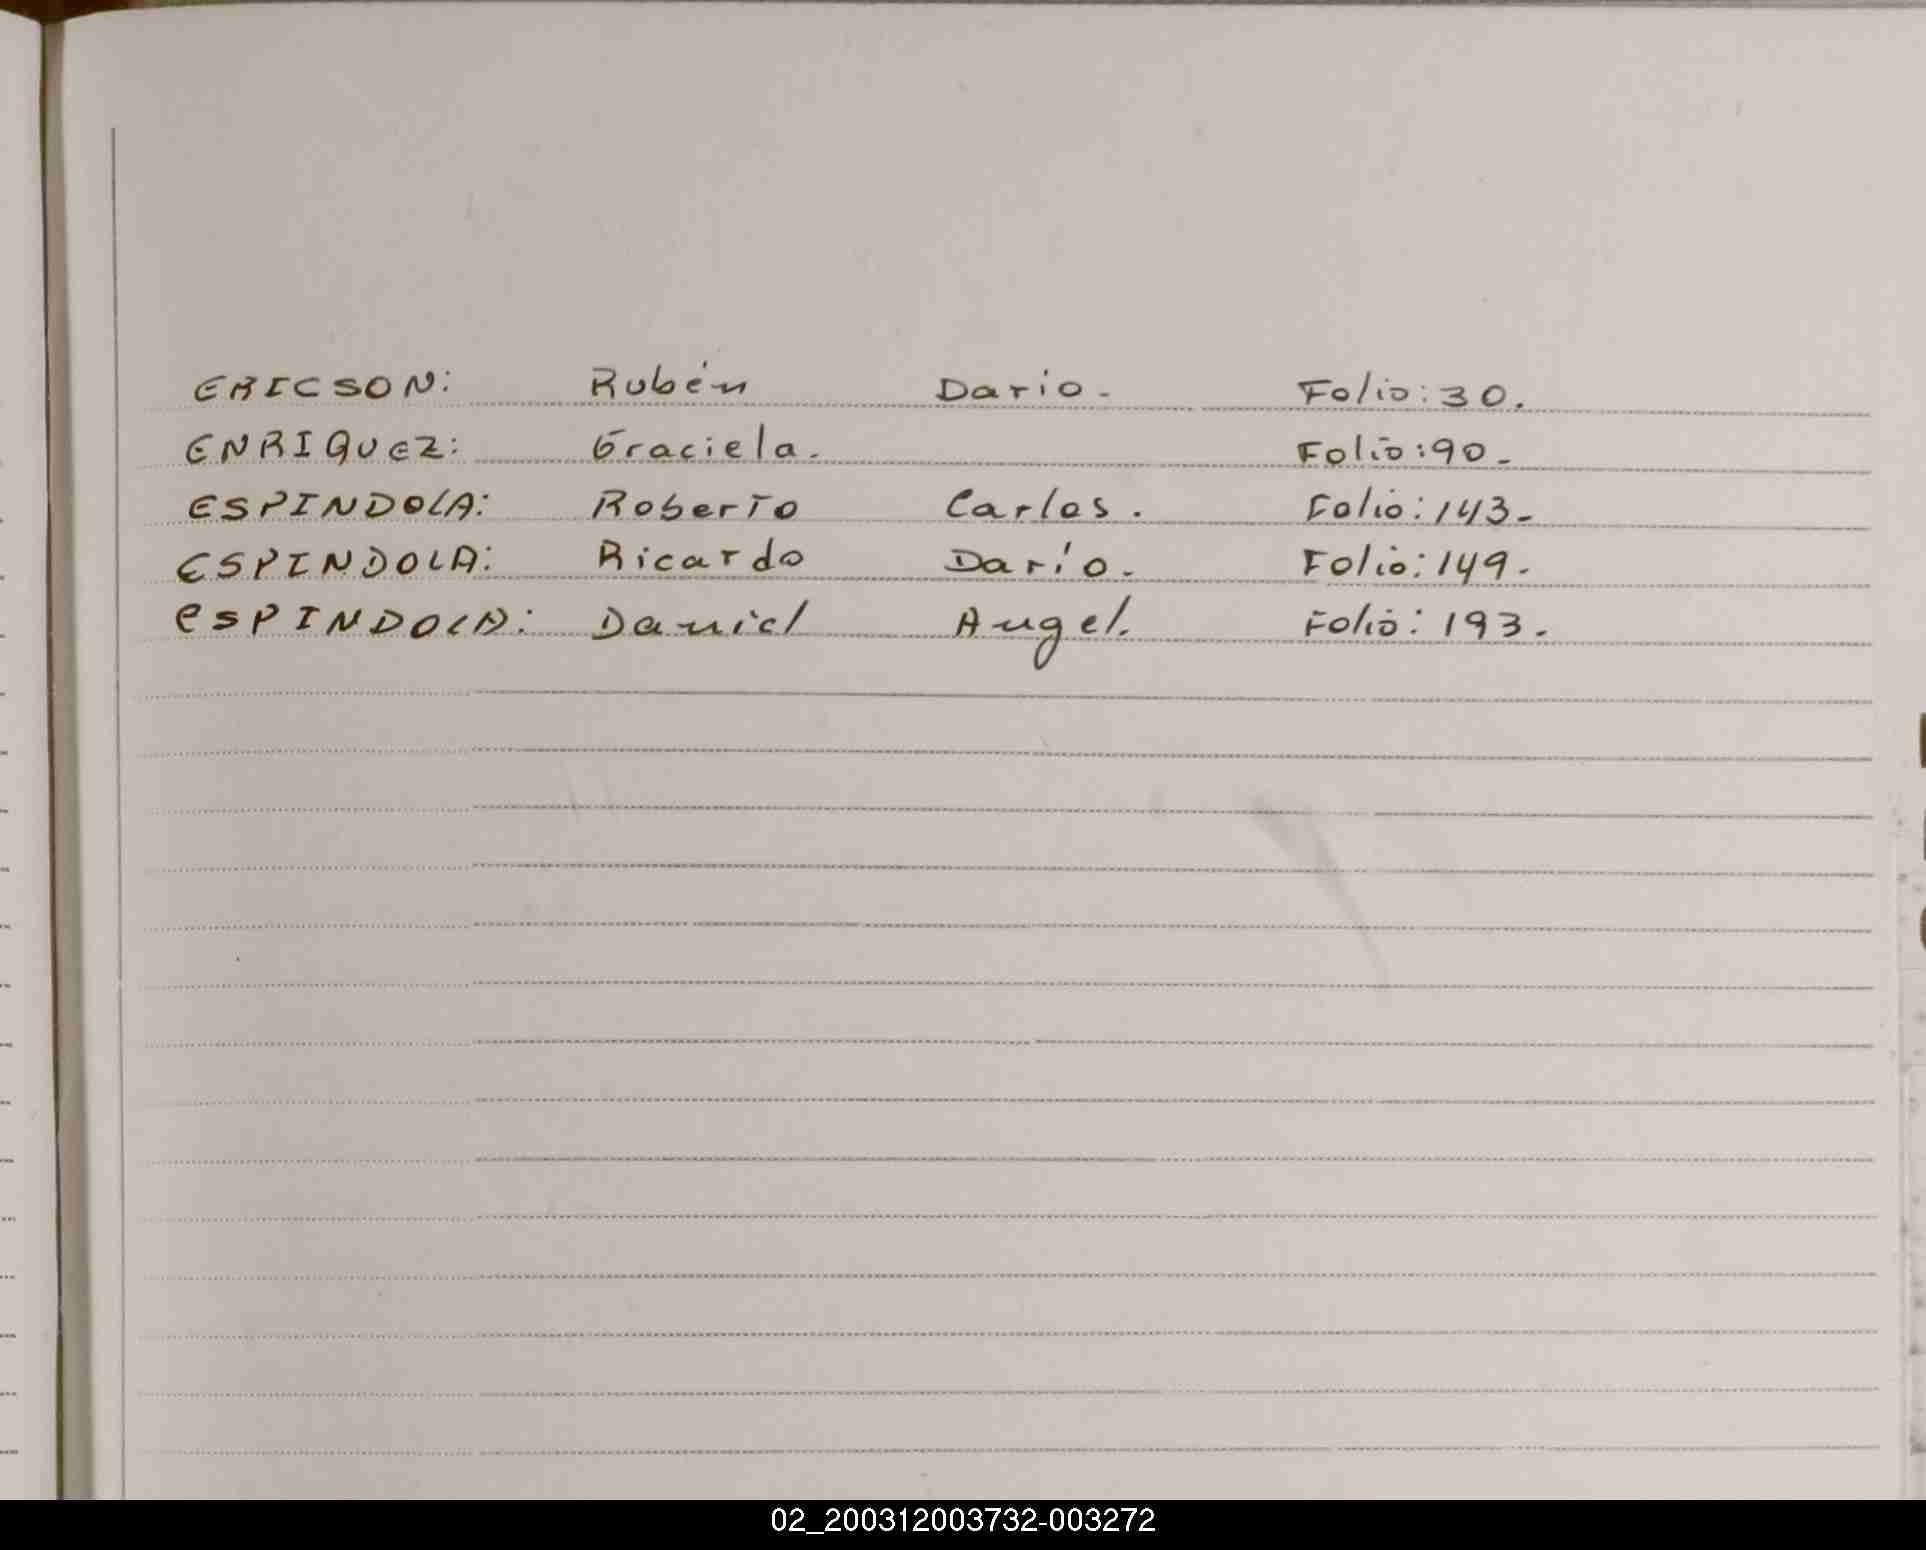 ERICSON: Rubén Dario. Folio: 30.
ENRIQUEZ: Graciela. Folio: 90.
ESPINDOLA: Roberto Carlos. Folio: 143.
ESPINDOLA: Ricardo Darío. Folio: 149.
ESPINDOLA: Daniel Angel. Folio: 193.
02_200312003732-003272